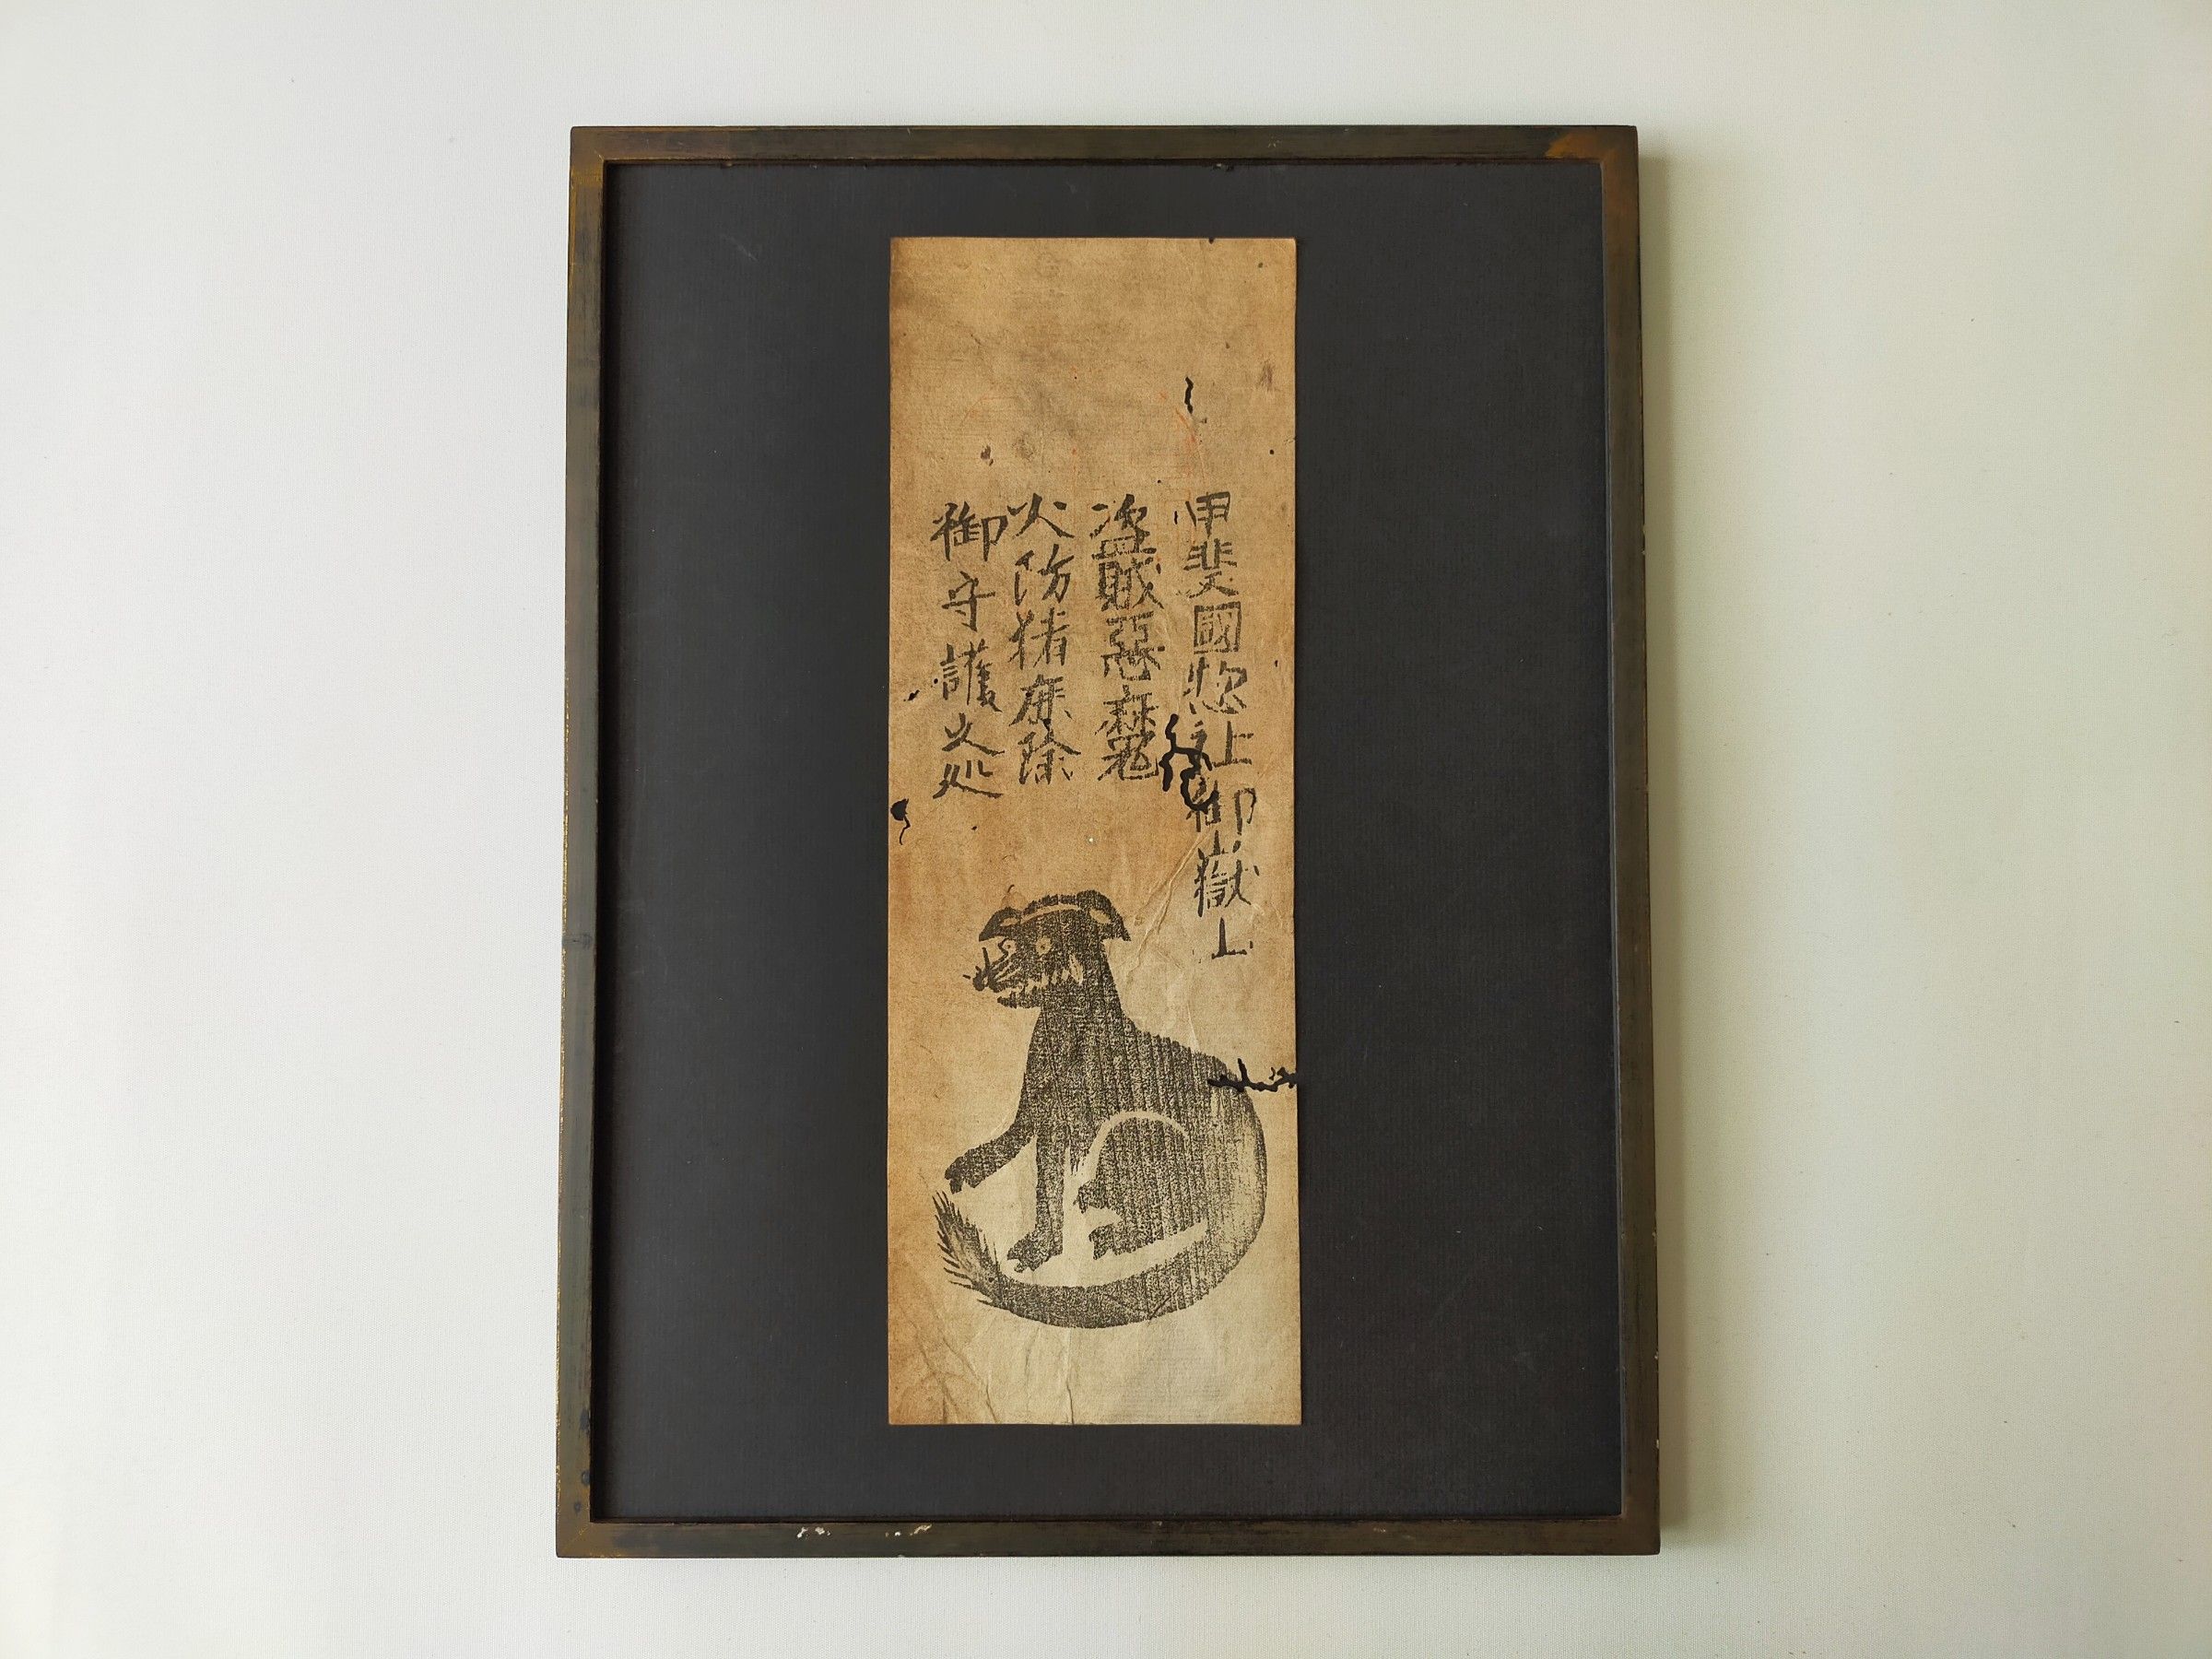 甲斐國惣社御嶽山
盗賊惡魔
火防猪鹿除
御守護之処